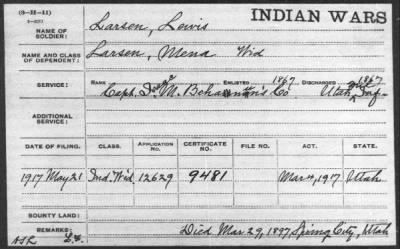 (3-H-41) INDIAN WARS
NAME OF SOLDIER: Larsen, Lewis
NAME AND CLASS OF DEPENDENT: Larsen, Mena Wid
SERVICE: NAME ENLISTED 1867 DISCHARGED 1867
Capt. Isaac M. Behannin's Co Utah Inf-
ADDITIONAL SERVICE:
DATE OF FILING. CLASS. APPLICATION No. CERTIFICATE No. FILE No. ACT. STATE.
1917 May 21 Ind. Wid. 12629 9481 Mar 4, 1917 Utah
BOUNTY LAND:
REMARKS: Died Mar 29, 1897, Spring City, Utah